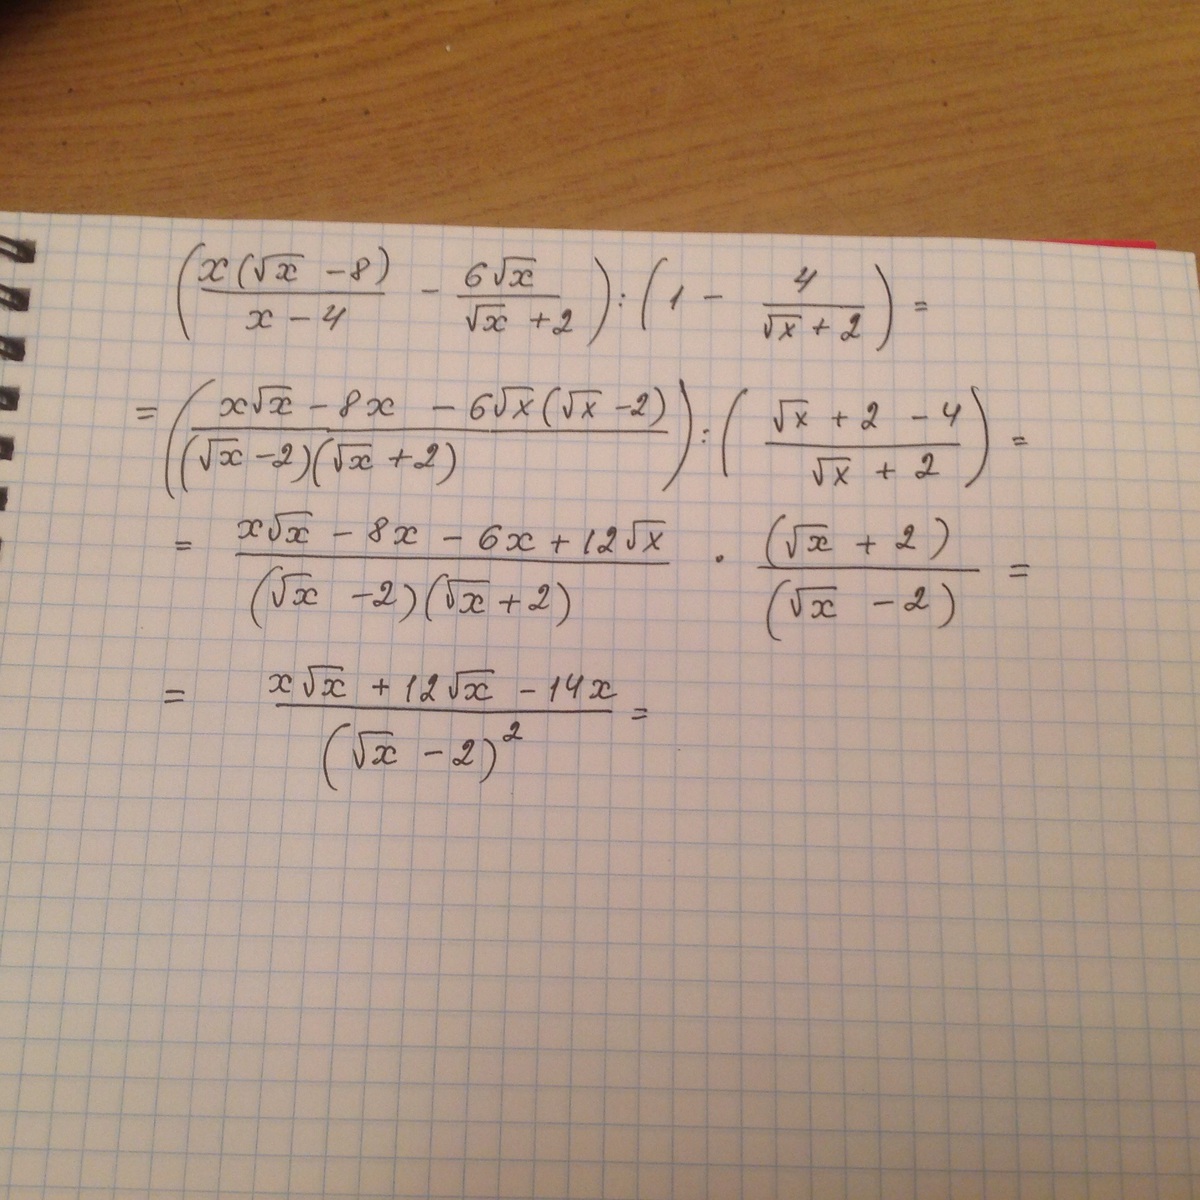 (x(√x − 8)/(x − 4) − 6√x/(√x + 2)) : (1 − 4/(√x + 2)) =
= ((x√x − 8x − 6√x(√x − 2))/((√x − 2)(√x + 2))) : ((√x + 2 − 4)/(√x + 2)) =
= (x√x − 8x − 6x + 12√x)/((√x − 2)(√x + 2)) · (√x + 2)/(√x − 2) =
= (x√x + 12√x − 14x)/(√x − 2)² =